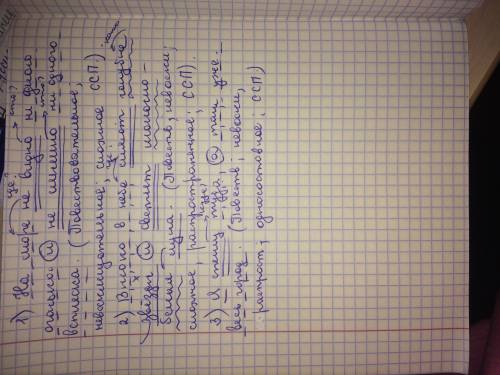 где? что?
1) На море не видно ни одного
что?
огонька и не слышно ни одного
всплеска. (Повествовательное,
невосклицательное; сложное ССП.)
где
2) Высоко в небе сияют голубые
звёзды и светит молочно-
белая луна. (Повеств, невоскл;
сложное, распространенное; ССП).
(куда?)
3) Я спешу туда, а там уже -
весь город. (Повеств; невоскл,
распрост; односоставное; ССП)